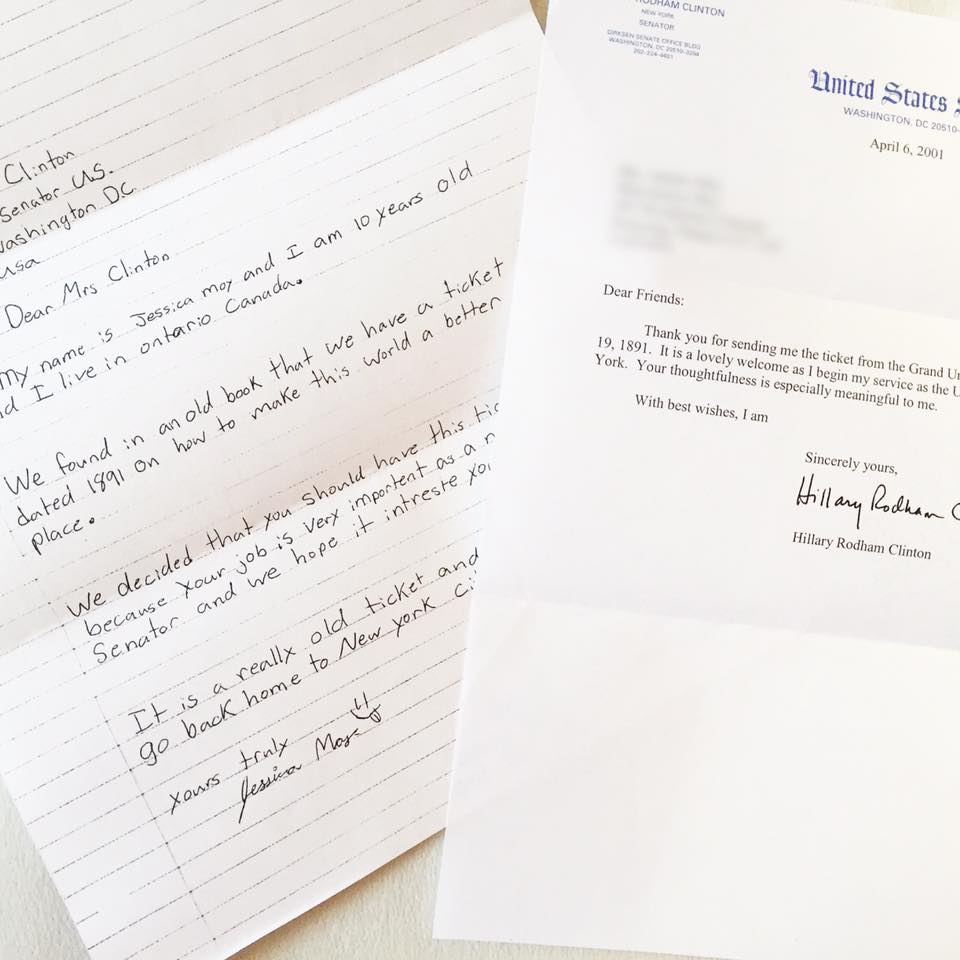 Clinton
Senator U.S.
Washington D.C.
usa
Dear Mrs Clinton
My name is Jessica moy and I am 10 years old
and I live in ontario Canada.
We found in an old book that we have a ticket
dated 1891 on how to make this world a better
place.
We decided that you should have this
because your job is very importent as a
Senator and we hope it intreste
It is a really old ticket and
go back home to New york
yours truly
Jessica Moy
RODHAM CLINTON
NEW YORK
SENATOR
DIRKSEN SENATE OFFICE BLDG
WASHINGTON, DC 20510-3204
202-224-4451
United States
WASHINGTON, DC 20510-
April 6, 2001
Dear Friends:
Thank you for sending me the ticket from the Grand
19, 1891. It is a lovely welcome as I begin my service as the U
York. Your thoughtfulness is especially meaningful to me.
With best wishes, I am
Sincerely yours,
Hillary Rodham
Hillary Rodham Clinton